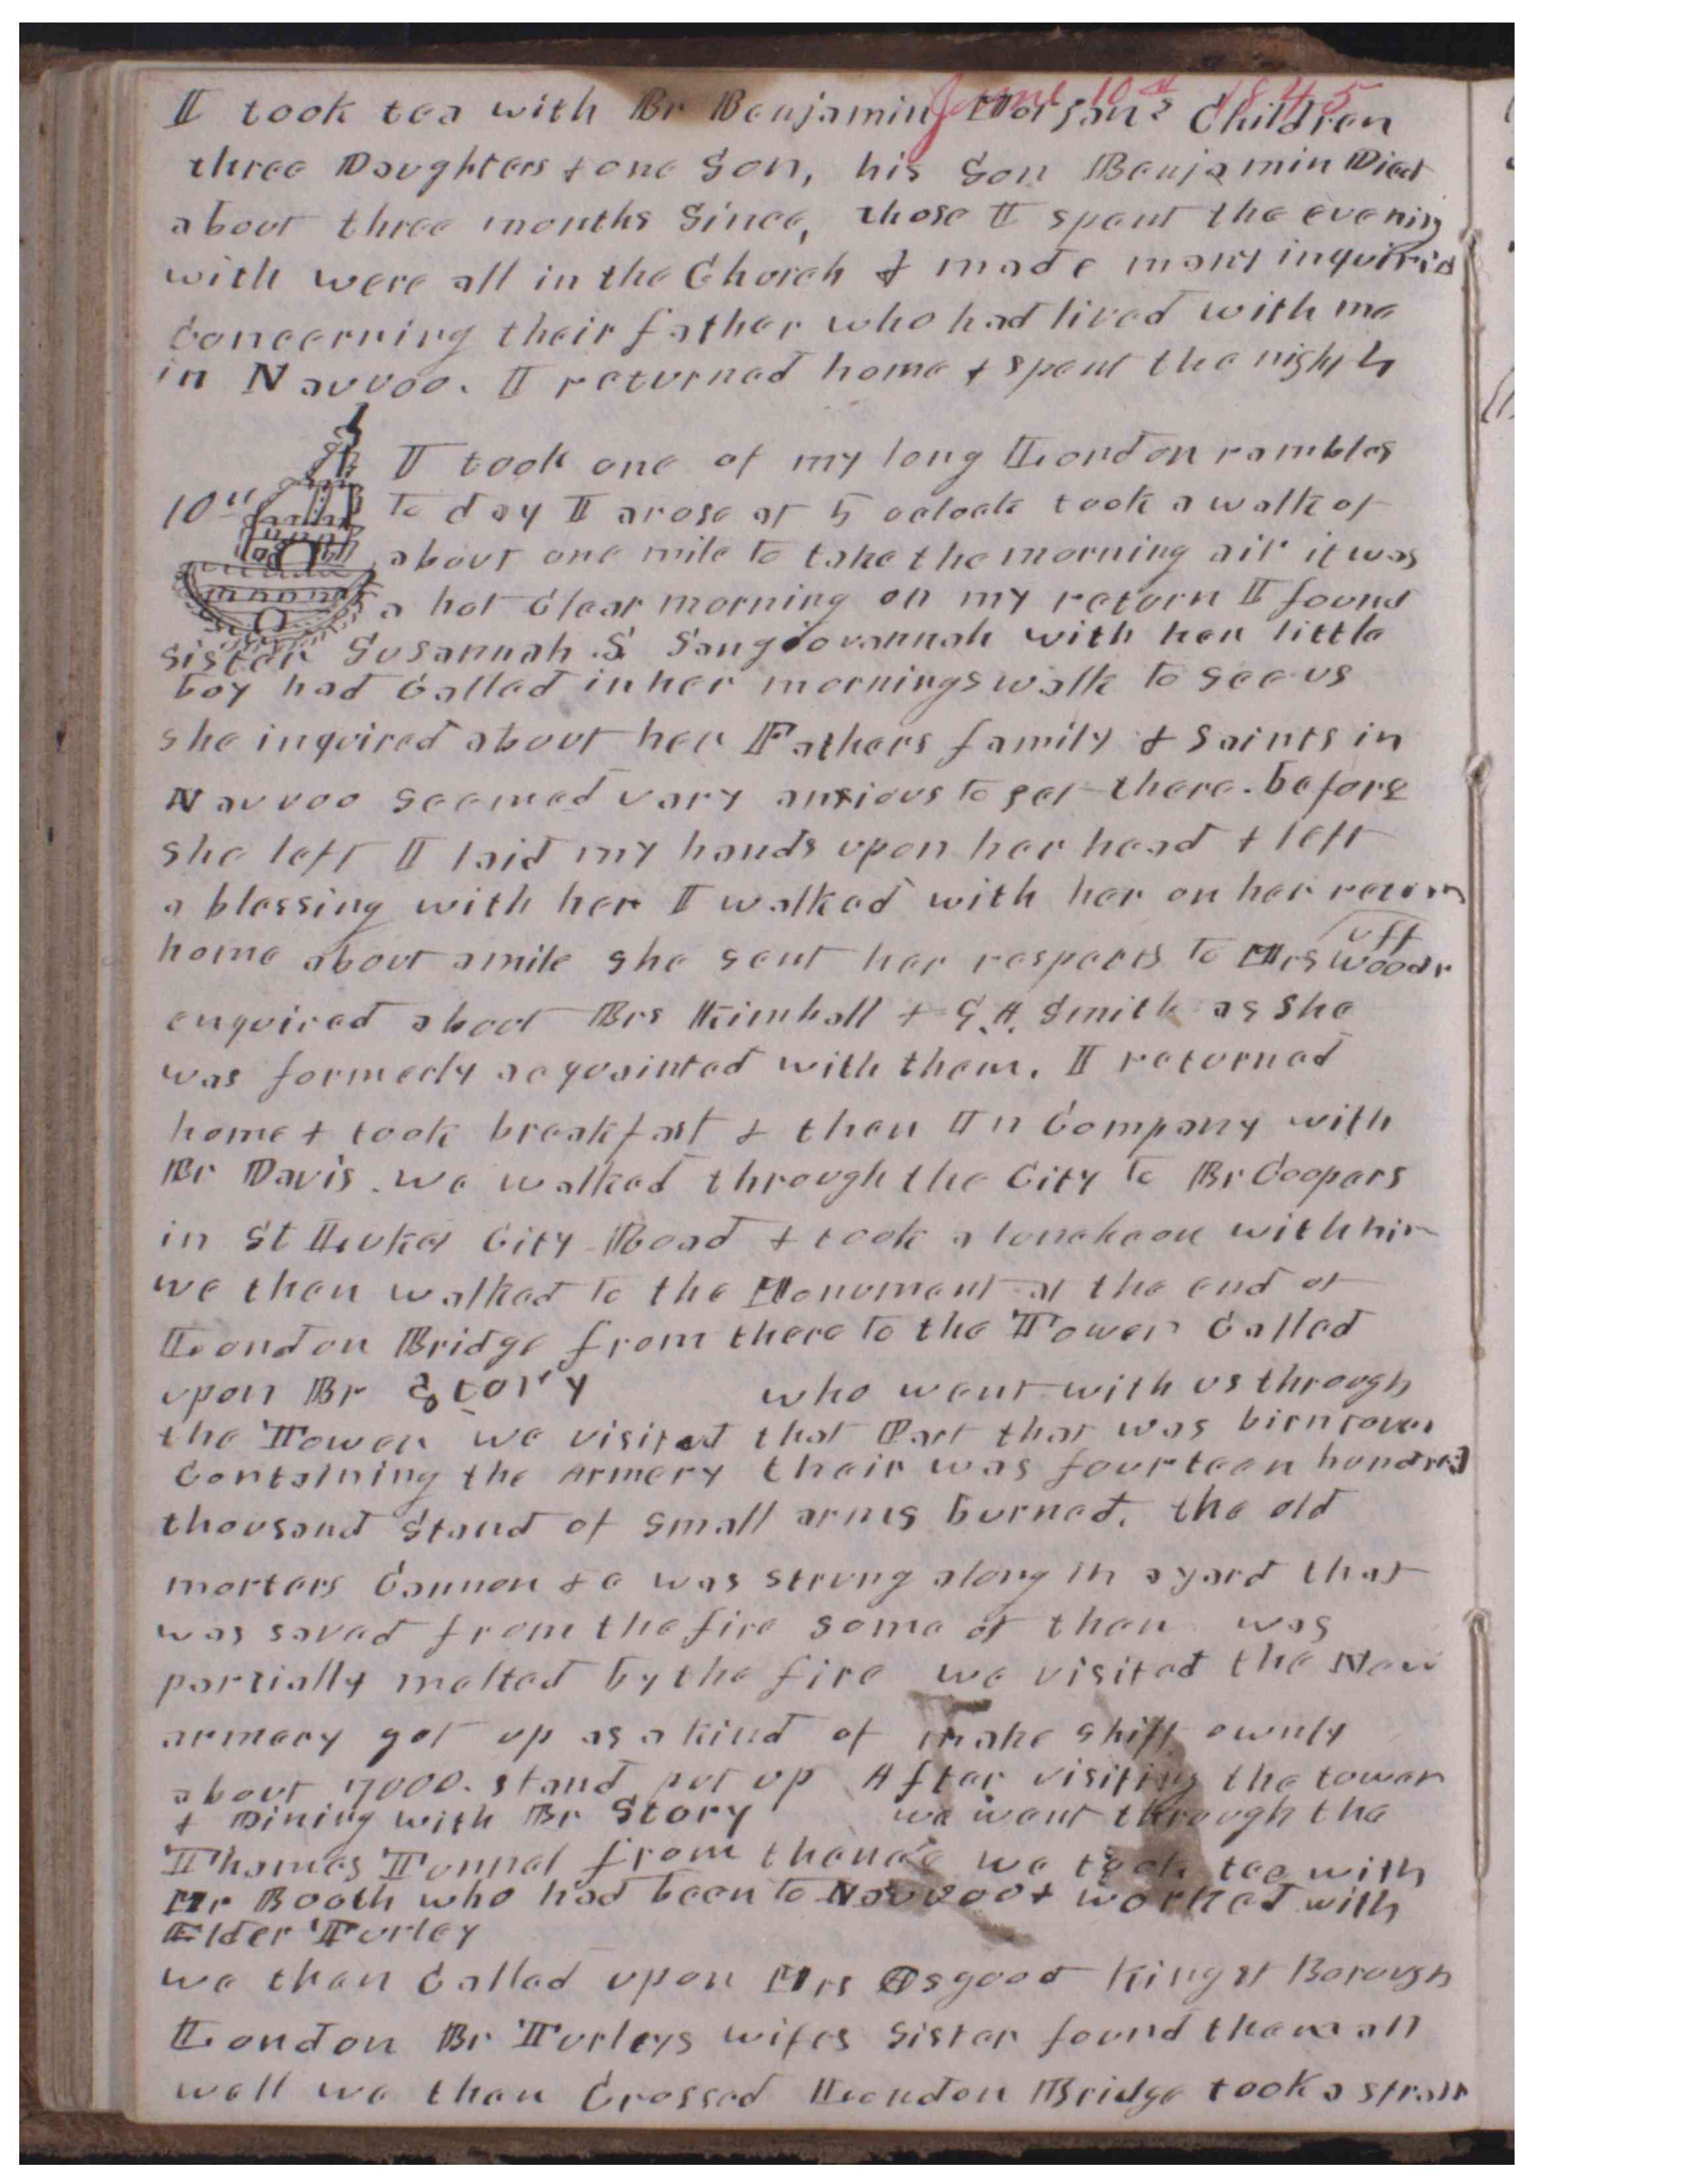 June 10th 1845
I took tea with Br Benjamin Morgans Children
three Daughters & one Son, his Son Benjamin Died
about three months Since, those I spent the evening
with were all in the Church & made many inquiries
Concerning their father who had lived with me
in Nauvoo. I returned home & spent the night
I took one of my long London rambles
10th to day I arose at 5 oclock took a walk of
about one mile to take the morning air it was
a hot Clear morning on my return I found
sister Susannah S Sangiovannah with her little
boy had Called in her mornings walk to see us
she inquired about her Fathers family & Saints in
Nauvoo seemed vary anxious to get there. before
she left I laid my hands upon her head & left
a blessing with her I walked with her on her return
home about a mile she sent her respects to Mrs Woodr
uff
enquired about Brs Kimball & G. A. Smith as she
was formerly acquainted with them. I returned
home & took breakfast & then In Company with
Br Davis. we walked through the City to Br Coopers
in St Lukes City Road & took a luncheon with him
we then walked to the Monument at the end of
London Bridge from there to the Tower Called
upon Br Story who went with us through
the Tower we visited that Part that was birnt over
Containing the Armery thair was fourteen hundred
thousand Stand of Small arms burned. the old
morters Cannon &c was strung along in a yard that
was saved from the fire some of then was
partially melted by the fire we visited the New
armery got up as a kind of make shift ownly
about 7000. stand put up After visiting the tower
& Dining with Br Story we went through the
Thames Tunnel from thence we took tea with
Mr Booth who had been to Nauvoo & worked with
Elder Turley
we then Called upon Mrs Osgood King st Borough
London Br Turleys wifes Sister found them all
well we then Crossed London Bridge took a